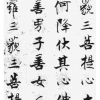 藐三菩提心
何降伏其心
善男子善女
三藐三菩